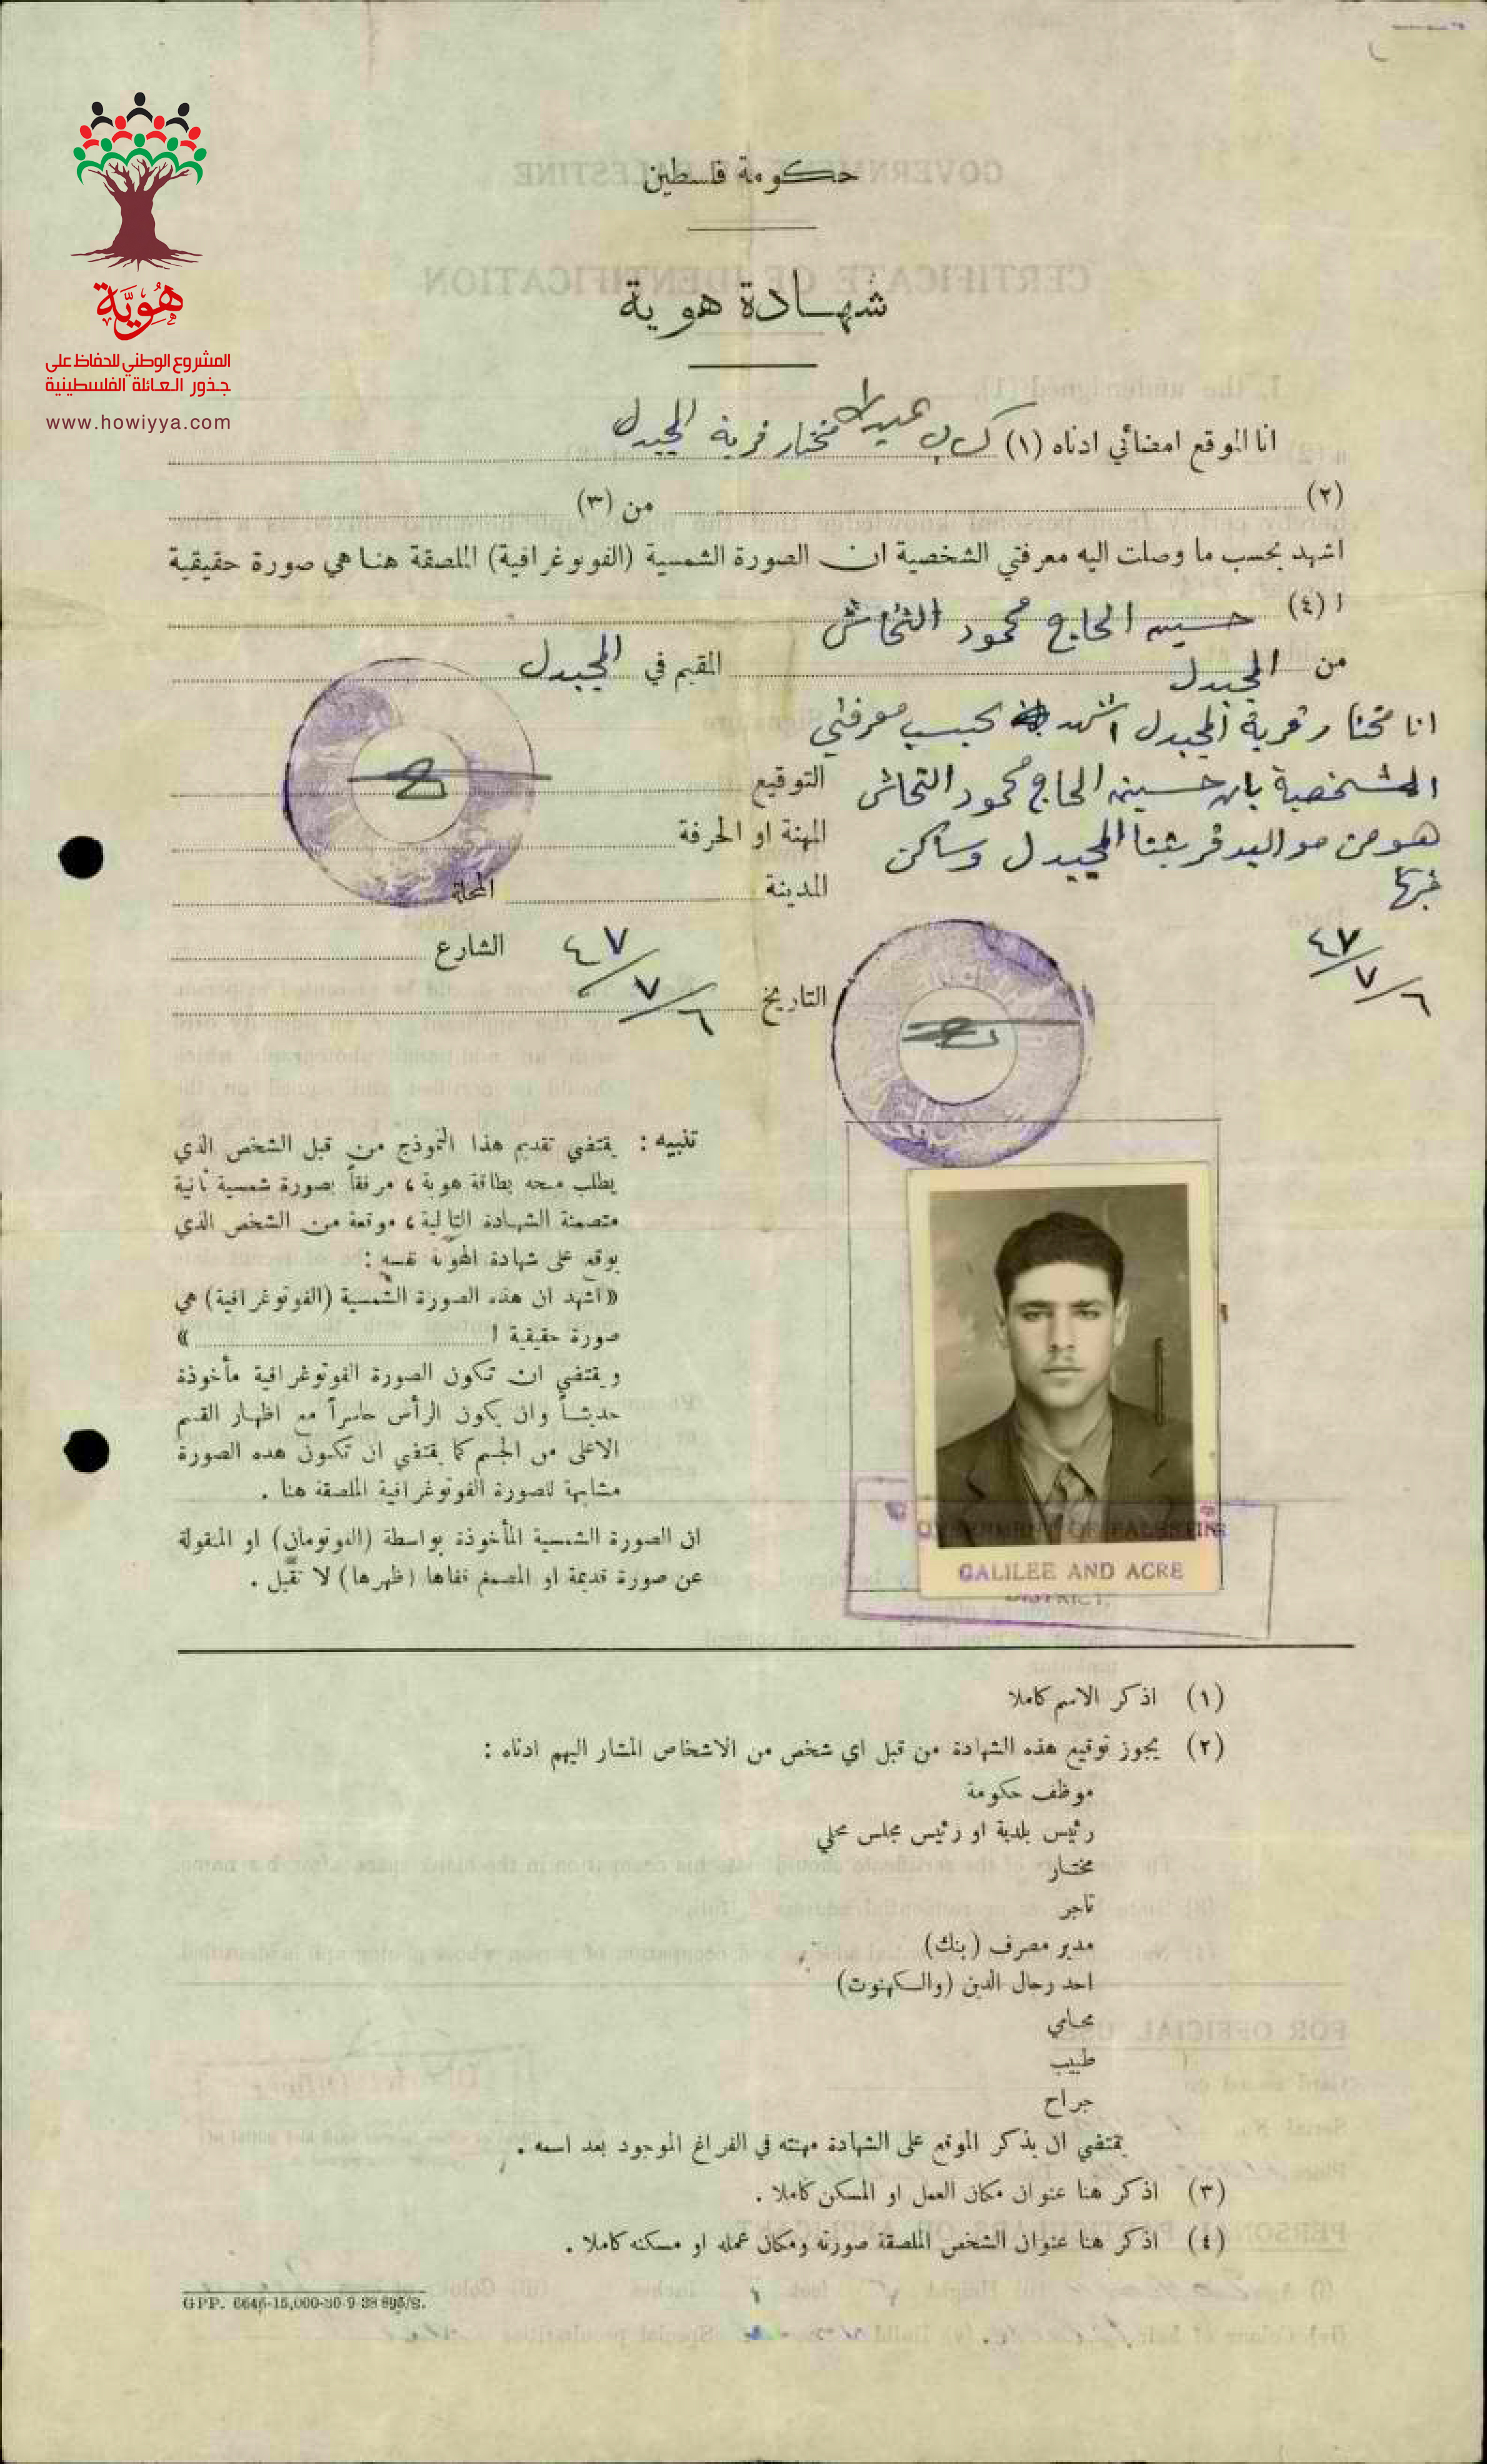 هوية
المشروع الوطني للحفاظ على
جذور العائلة الفلسطينية
www.howiyya.com
حكومة فلسطين
شهادة هوية
انا الموقع امضائي ادناه (١) مختار قرية المجيدل
(٢) من (٣)
اشهد بحسب ما وصلت اليه معرفتي الشخصية ان الصورة الشمسية (الفوتوغرافية) الملصقة هنا هي صورة حقيقية
ا (٤) حسين الحاج محمود
من المجيدل المقيم في المجيدل
انا مختار قرية المجيدل اشهد بحسب معرفتي
الشخصية بان حسين الحاج محمود
هو من مواليد قريتنا المجيدل وساكن
فيها
٦/٧/٤٧
التوقيع
المهنة او الحرفة
المدينة المحلة
الشارع
التاريخ ٦/٧/٤٧
تنبيه : يقتضي تقديم هذا النموذج من قبل الشخص الذي
يطلب منحه بطاقة هوية ، مرفقاً بصورة شمسية ثانية
متضمنة الشهادة التالية ، موقعة من الشخص الذي
يوقع على شهادة الهوية نفسه :
«اشهد ان هذه الصورة الشمسية (الفوتوغرافية) هي
صورة حقيقية ا »
ويقتضي ان تكون الصورة الفوتوغرافية مأخوذة
حديثاً وان يكون الرأس حاسراً مع اظهار القسم
الاعلى من الجسم كما يقتضي ان تكون هذه الصورة
مشابهة للصورة الفوتوغرافية الملصقة هنا .
ان الصورة الشمسية المأخوذة بواسطة (الفوتومان) او المنقولة
عن صورة قديمة او المصمغ قفاها (ظهرها) لا تقبل .
GOVERNMENT OF PALESTINE
GALILEE AND ACRE
DISTRICT.
(١) اذكر الاسم كاملا
(٢) يجوز توقيع هذه الشهادة من قبل اي شخص من الاشخاص المشار اليهم ادناه :
موظف حكومة
رئيس بلدية او رئيس مجلس محلي
مختار
تاجر
مدير مصرف (بنك)
احد رجال الدين (والكهنوت)
محامي
طبيب
جراح
يقتضي ان يذكر الموقع على الشهادة مهنته في الفراغ الموجود بعد اسمه .
(٣) اذكر هنا عنوان مكان العمل او المسكن كاملا .
(٤) اذكر هنا عنوان الشخص الملصقة صورته ومكان عمله او مسكنه كاملا .